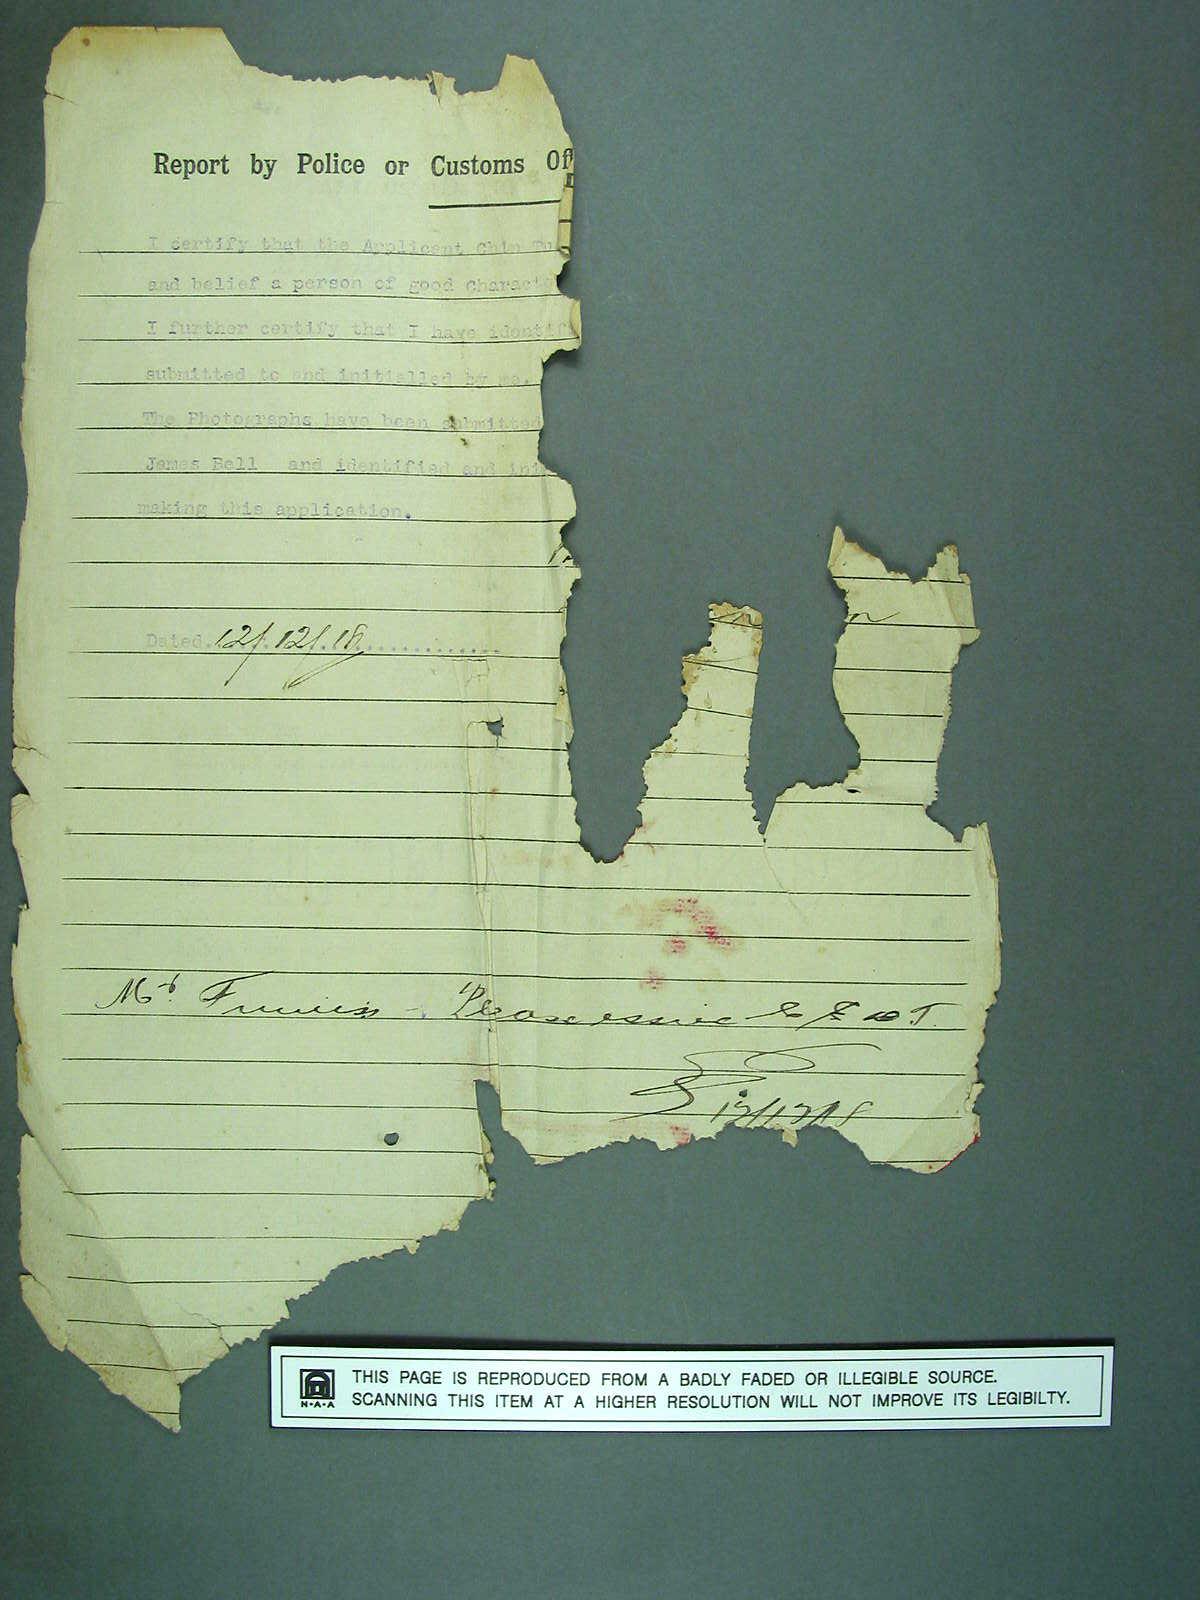 Report by Police or Customs Of
I certify that the Applicant Chin Tu
and belief a person of good characte
I further certify that I have identif
submitted to and initialled by me.
The Photographs have been submitted
James Bell and identified and ini
making this application.
Dated. 12/.12/.18
Mr.
12/12/18
N·A·A
THIS PAGE IS REPRODUCED FROM A BADLY FADED OR ILLEGIBLE SOURCE.
SCANNING THIS ITEM AT A HIGHER RESOLUTION WILL NOT IMPROVE ITS LEGIBILTY.